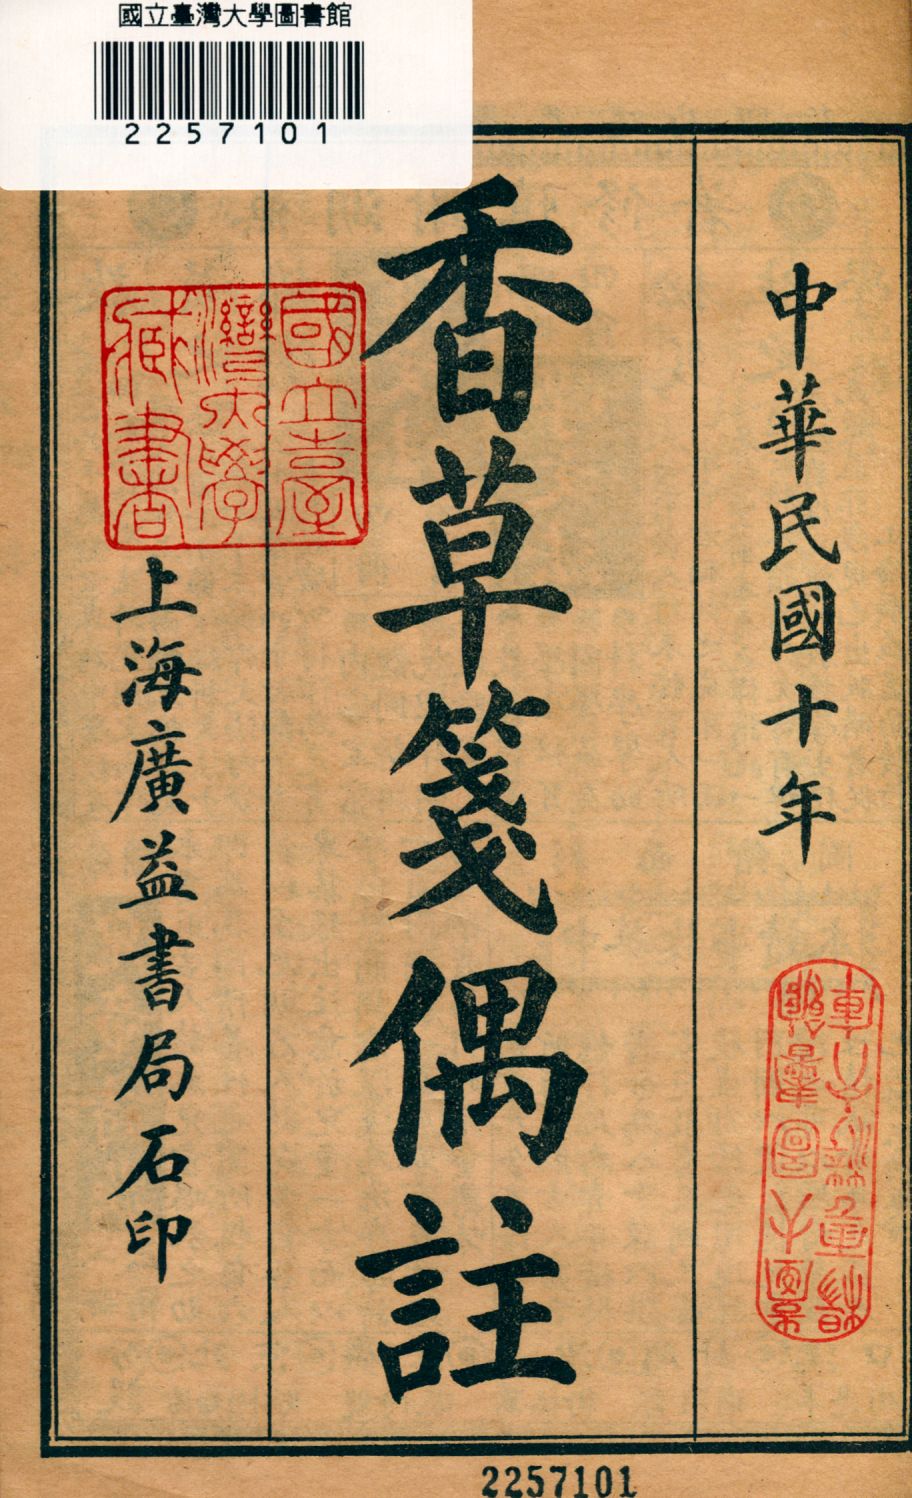 國立臺灣大學圖書館
2257101
中華民國十年
香草箋偶註
國立臺
灣大學
藏書
上海廣益書局石印
2257101